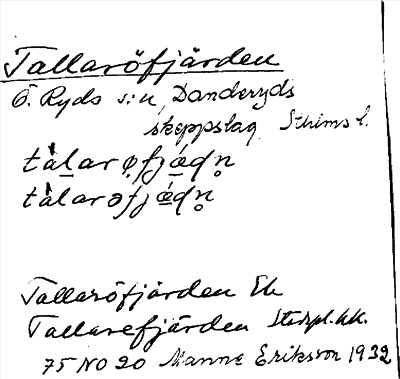 Tallaröfjärden
Ö. Ryds s:n, Danderyds
skeppslag, Sthlms l.
tàlarøfjæ̀dn̥
tàlarəfjæ̀dn̥
Tallaröfjärden Ek
Tallarefjärden
75 NO 20 Manne Eriksson 1932